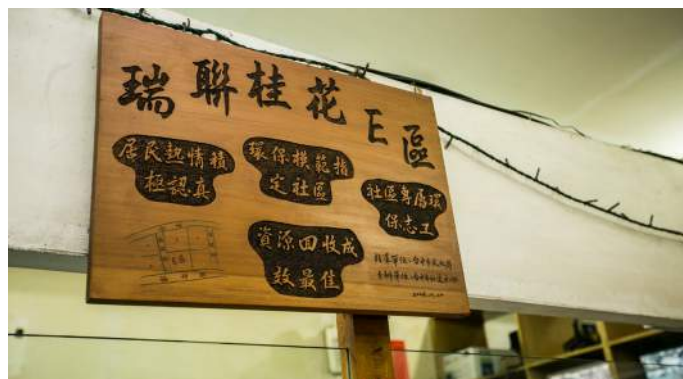 瑞聯桂花E區
居民熱情積
極認真
環保模範指
定社區
社區專屬環
保志工
資源回收成
效最佳